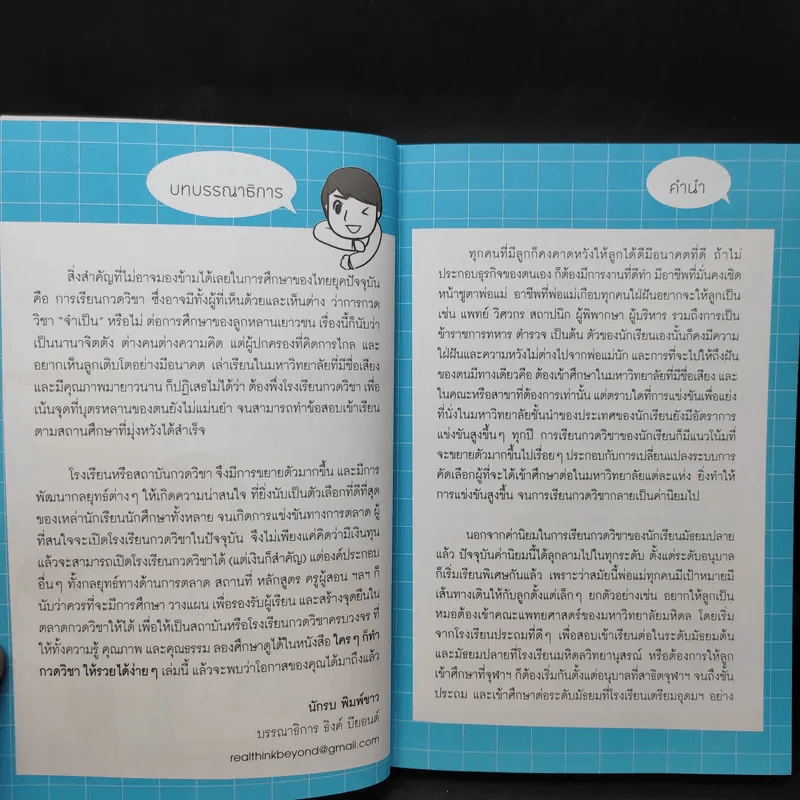 บทบรรณาธิการ
สิ่งสำคัญที่ไม่อาจมองข้ามได้เลยในการศึกษาของไทยยุคปัจจุบัน
คือ การเรียนกวดวิชา ซึ่งอาจมีทั้งผู้ที่เห็นด้วยและเห็นต่าง ว่าการกวด
วิชา “จำเป็น” หรือไม่ ต่อการศึกษาของลูกหลานเยาวชน เรื่องนี้ก็นับว่า
เป็นนานาจิตตัง ต่างคนต่างความคิด แต่ผู้ปกครองที่คิดการไกล และ
อยากเห็นลูกเติบโตอย่างมีอนาคต เล่าเรียนในมหาวิทยาลัยที่มีชื่อเสียง
และมีคุณภาพมายาวนาน ก็ปฏิเสธไม่ได้ว่า ต้องพึ่งโรงเรียนกวดวิชา เพื่อ
เน้นจุดที่บุตรหลานของตนยังไม่แม่นยำ จนสามารถทำข้อสอบเข้าเรียน
ตามสถานศึกษาที่มุ่งหวังได้สำเร็จ
โรงเรียนหรือสถาบันกวดวิชา จึงมีการขยายตัวมากขึ้น และมีการ
พัฒนากลยุทธ์ต่างๆ ให้เกิดความน่าสนใจ ที่ยิ่งนับเป็นตัวเลือกที่ดีที่สุด
ของเหล่านักเรียนนักศึกษาทั้งหลาย จนเกิดการแข่งขันทางการตลาด ผู้
ที่สนใจจะเปิดโรงเรียนกวดวิชาในปัจจุบัน จึงไม่เพียงแค่คิดว่ามีเงินทุน
แล้วจะสามารถเปิดโรงเรียนกวดวิชาได้ (แต่เงินก็สำคัญ) แต่องค์ประกอบ
อื่นๆ ทั้งกลยุทธ์ทางด้านการตลาด สถานที่ หลักสูตร ครูผู้สอน ฯลฯ ก็
นับว่าควรที่จะมีการศึกษา วางแผน เพื่อรองรับผู้เรียน และสร้างจุดยืนใน
ตลาดกวดวิชาให้ได้ เพื่อให้เป็นสถาบันหรือโรงเรียนกวดวิชาครบวงจร ที่
ให้ทั้งความรู้ คุณภาพ และคุณธรรม ลองศึกษาดูได้ในหนังสือ ใครๆ ก็ทำ
กวดวิชา ให้รวยได้ง่ายๆ เล่มนี้ แล้วจะพบว่าโอกาสของคุณได้มาถึงแล้ว
นักรบ พิมพ์ขาว
บรรณาธิการ ธิงค์ บียอนด์
realthinkbeyond@gmail.com
คำนำ
ทุกคนที่มีลูกก็คงคาดหวังให้ลูกได้ดีมีอนาคตที่ดี ถ้าไม่
ประกอบธุรกิจของตนเอง ก็ต้องมีการงานที่ดีทำ มีอาชีพที่มั่นคงเชิด
หน้าชูตาพ่อแม่ อาชีพที่พ่อแม่เกือบทุกคนใฝ่ฝันอยากจะให้ลูกเป็น
เช่น แพทย์ วิศวกร สถาปนิก ผู้พิพากษา ผู้บริหาร รวมถึงการเป็น
ข้าราชการทหาร ตำรวจ เป็นต้น ตัวของนักเรียนเองนั้นก็คงมีความ
ใฝ่ฝันและความหวังไม่ต่างไปจากพ่อแม่นัก และการที่จะไปให้ถึงฝัน
ของตนมีทางเดียวคือ ต้องเข้าศึกษาในมหาวิทยาลัยที่มีชื่อเสียง และ
ในคณะหรือสาขาที่ต้องการเท่านั้น แต่ตราบใดที่การแข่งขันเพื่อแย่ง
ที่นั่งในมหาวิทยาลัยชั้นนำของประเทศของนักเรียนยังมีอัตราการ
แข่งขันสูงขึ้นๆ ทุกปี การเรียนกวดวิชาของนักเรียนก็มีแนวโน้มที่
จะขยายตัวมากขึ้นไปเรื่อยๆ ประกอบกับการเปลี่ยนแปลงระบบการ
คัดเลือกผู้ที่จะได้เข้าศึกษาต่อในมหาวิทยาลัยแต่ละแห่ง ยิ่งทำให้
การแข่งขันสูงขึ้น จนการเรียนกวดวิชากลายเป็นค่านิยมไป
นอกจากค่านิยมในการเรียนกวดวิชาของนักเรียนมัธยมปลาย
แล้ว ปัจจุบันค่านิยมนี้ได้ลุกลามไปในทุกระดับ ตั้งแต่ระดับอนุบาล
ก็เริ่มเรียนพิเศษกันแล้ว เพราะว่าสมัยนี้พ่อแม่ทุกคนมีเป้าหมายมี
เส้นทางเดินให้กับลูกตั้งแต่เล็กๆ ยกตัวอย่างเช่น อยากให้ลูกเป็น
หมอต้องเข้าคณะแพทยศาสตร์ของมหาวิทยาลัยมหิดล โดยเริ่ม
จากโรงเรียนประถมที่ดีๆ เพื่อสอบเข้าเรียนต่อในระดับมัธยมต้น
และมัธยมปลายที่โรงเรียนมหิดลวิทยานุสรณ์ หรือต้องการให้ลูก
เข้าศึกษาที่จุฬาฯ ก็ต้องเริ่มกันตั้งแต่อนุบาลที่สาธิตจุฬาฯ จนถึงชั้น
ประถม และเข้าศึกษาต่อระดับมัธยมที่โรงเรียนเตรียมอุดมฯ อย่าง